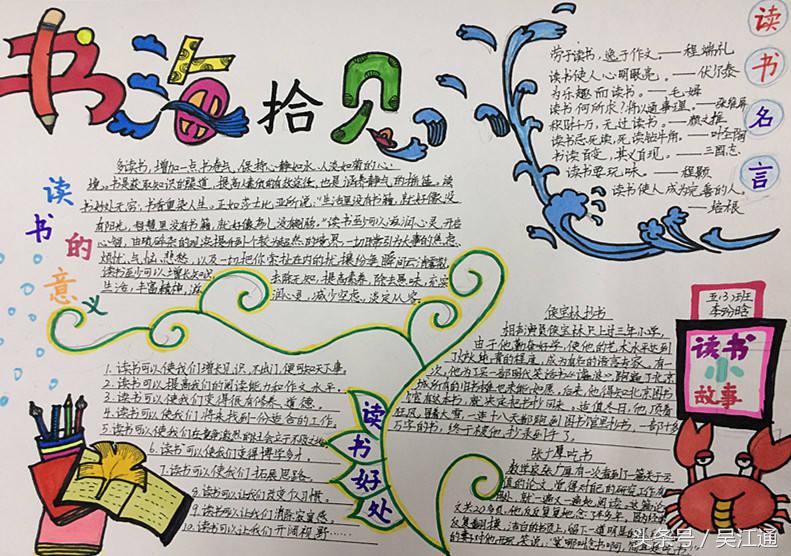 书海拾贝
读书的意义
多读书，增加一点书卷气，保持心静如水、人淡如菊的心
境。书是获取知识的渠道，提高素质的有效途径，也是涵养静气的摇篮。读
书妙处无穷，书香熏染人生。正如莎士比亚所说："生活里没有书籍，就好像没
有阳光，智慧里没有书籍，就好像鸟儿没有翅膀。"读书至少可以滋润心灵，开启
心智，由琐碎杂乱的现实提升到一个较为超然的境界，一切日常引为大事的焦急、
烦忧、气恼、悲愁，以及一切把你牵扯在内的扰攘纷争，瞬间云消雾散。
读书至少可以增长知识，去除无知，提高素养，除去愚昧，充实
生活，丰富精神，滋润心灵，减少空虚，淡定从容。
读书名言
劳于读书，逸于作文。——程端礼
读书使人心明眼亮。——伏尔泰
为乐趣而读书。——毛姆
读书何所求？将以通事理。——张维屏
积财千万，无过读书。——颜之推
读书忌死读，死读钻牛角。——叶圣陶
书读百变，其义自现。——三国志
读书要玩味。——程颢
读书使人成为完善的人。
——培根
读书好处
1.读书可以使我们增长见识，不出门，便可知天下事。
2.读书可以提高我们的阅读能力和作文水平。
3.读书可以使我们变得很有修养、道德。
4.读书可以使我们将来找到一份适合的工作。
5.读书可以使我们在竞争激烈的社会立于不败之地。
6.读书可以使我们变得博学多才。
7.读书可以使我们拓展思路。
8.读书可以让我们改变个人习惯。
9.读书可以让我们消除寂寞感。
10.读书可以让我们开阔视野……
五(3)班
读书小故事
侯宝林抄书
相声演员侯宝林只上过三年小学，
由于他勤奋好学，使他的艺术水平达到
了炉火纯青的程度，成为有名的语言专家。有一
次，他为了买一部明代笑话书《谑浪》，跑遍了北京
城所有的旧书摊也未能如愿。后来，他得知北京图书
馆有这本书，就决定把书抄回来。适值冬日，他顶着
狂风，冒着大雪，一连十八天都跑到图书馆里抄书，一部十多
万字的书，终于被他抄录到手了。
张广厚吃书
数学家张广厚有一次看到了一篇关于亏
值的论文，觉得对自己的研究工作有
用处，就一遍又一遍地阅读。这篇论
文共20多页，他反反复复地念了半年多。
头条号／吴江通